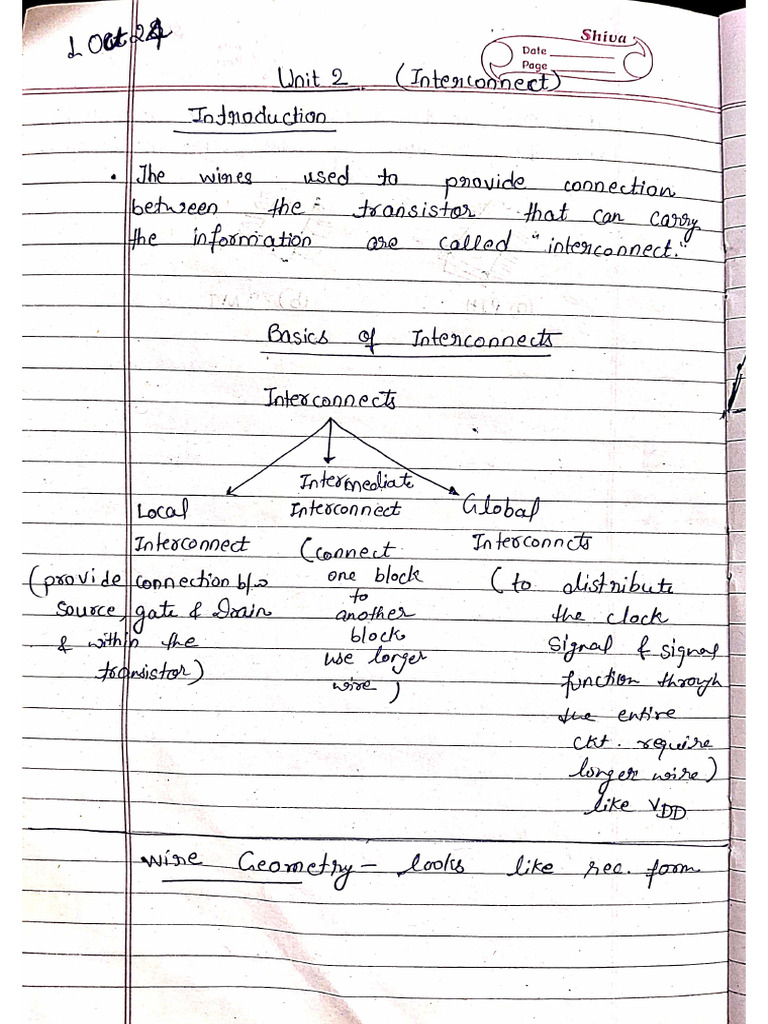 1 Oct 24
Shiva
Date
Page
Unit 2 (Interconnect)
Introduction
• The wires used to provide connection
between the transistor that can carry
the information are called "interconnect."
Basics of Interconnects
Interconnects
Local
Interconnect
(provide connection b/w
source, gate & Drain
& within the
transistor)
Intermediate
Interconnect
(connect
one block
to
another
block
use longer
wire)
Global
Interconncts
(to distribute
the clock
signal & signal
function through
the entire
ckt. require
longer wire)
like VDD
Wire Geometry - looks like rec. form